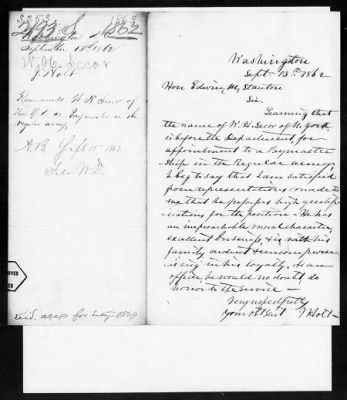 Washington
September 13th 1862
W. H. Secor
J Holt
Recommends W H Secor of
New York as Paymaster in the
regular army
A.B Sept 15 1862
File W.D.
Washington
Sept 13th 1862
Hon Edwin M. Stanton
Sir.
Learning that
the name of W. H. Secor of N. York
is before the Department, for
appointment to a Paymaster
ship in the Regular army,
I beg to say that I am satisfied
from representations made to
me that he possesses high qualifi
cations for the position - He has
an irreproachable moral character,
excellent business, & is with his
family ardent & uncompromi
sing in his loyalty. As an
officer he would no doubt, do
honor to the service -
Very respectfully
Your obt Servt J Holt